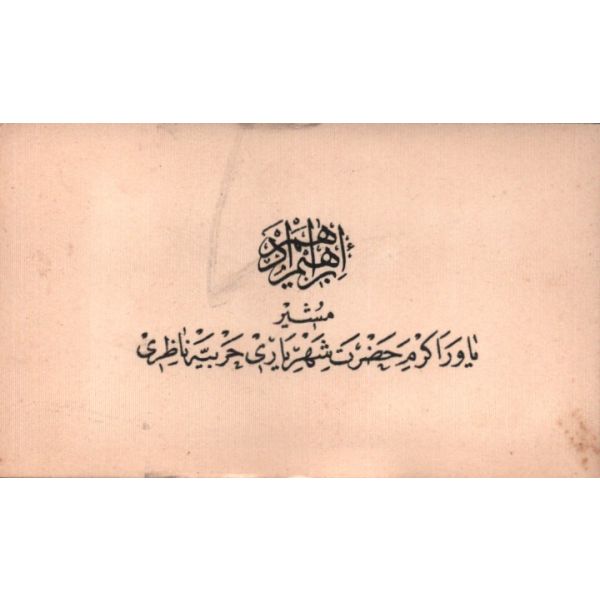 ابراهيم ادهم
مشير
ياور اكرم حضرت شهريارى حربيه ناظرى